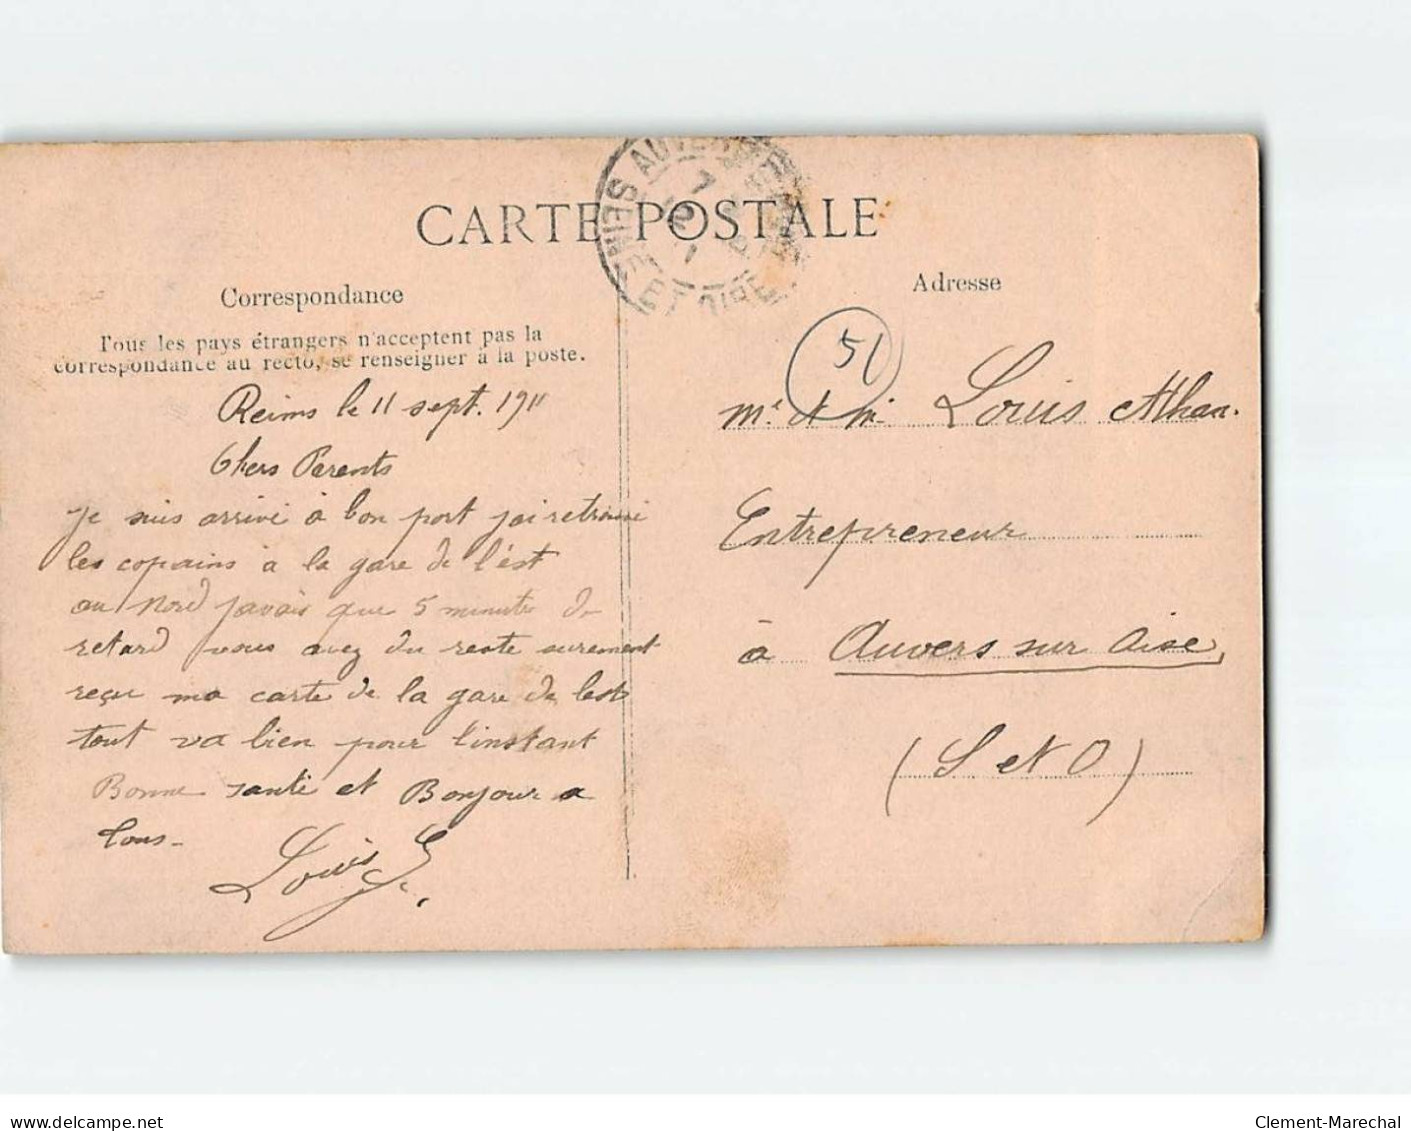 CARTE POSTALE
SEINE ET OISE
7
Correspondance
Tous les pays étrangers n'acceptent pas la
correspondance au recto, se renseigner à la poste.
Reims le 11 sept. 1911
Chers Parents
je suis arrivé à bon port jai retrouvé
les copains a la gare de l'est
au Nord javais que 5 minutes de
retard vous avez du reste surement
reçu ma carte de la gare de lest
tout va bien pour l'instant
Bonne santé et Bonjour a
tous -
Louis
Adresse
51
Mr. & M. Louis Athan.
Entrepreneur
à Auvers sur Oise,
(S et O)
delcampe.net
Clement-Marechal